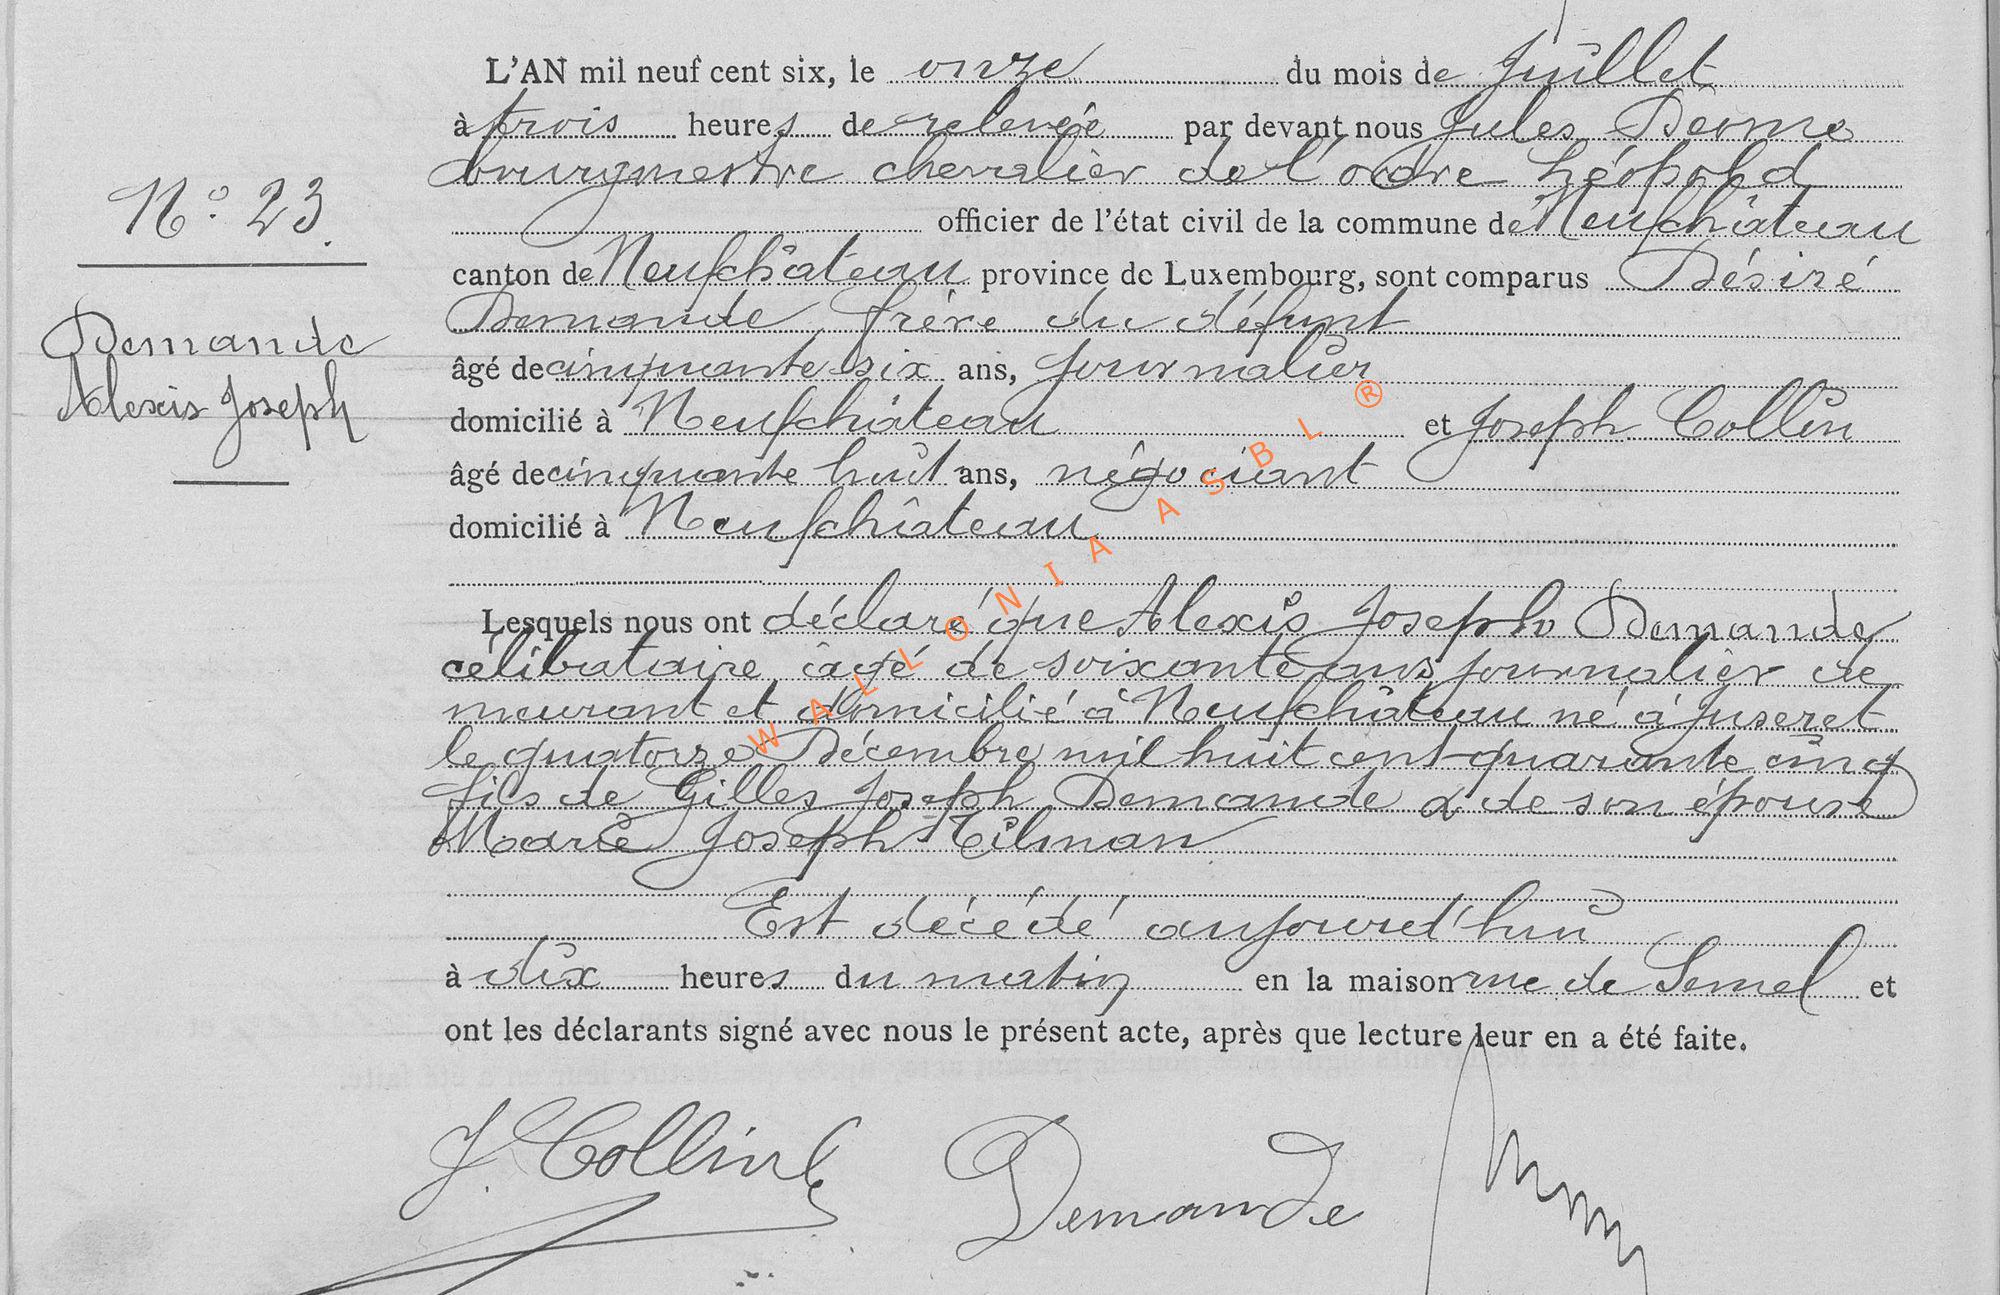 L'AN mil neuf cent six, le onze du mois de Juillet
à trois heures de relevée par devant nous Jules
bourgmestre chevalier de l'ordre Léopold
N° 23.
officier de l'état civil de la commune de Neufchâteau
canton de Neufchâteau province de Luxembourg, sont comparus Désiré
Demande, frère du défunt
Demande
âgé de cinquante six ans, journalier
Alexis Joseph
domicilié à Neufchâteau et Joseph Collin
âgé de cinquante huit ans, négociant
domicilié à Neufchâteau
Lesquels nous ont déclaré que Alexis Joseph Demande
célibataire, âgé de soixante ans, journalier de
meurant et domicilié à Neufchâteau né à Juseret
le quatorze Décembre mil huit cent quarante cinq
fils de Gilles Joseph Demande & de son épouse
Marie Joseph Tilman
Est décédé aujourd'hui
à dix heures du matin en la maison rue de Semel et
ont les déclarants signé avec nous le présent acte, après que lecture leur en a été faite.
J. Collin Demande
WALLONIA ASBL ®